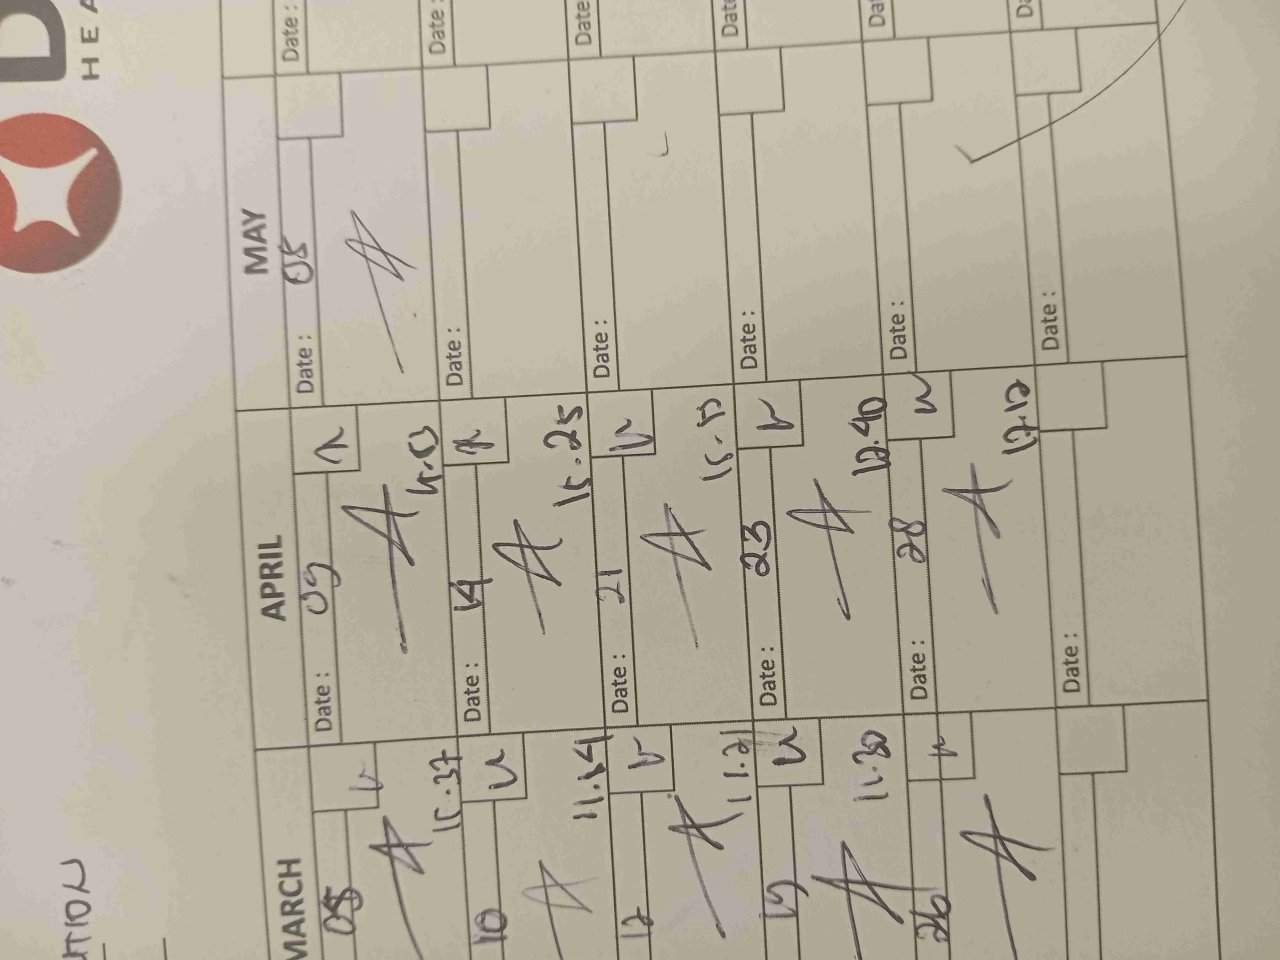 D
HEA
UTION
MARCH
05
15.37
10
11.14
12
11.21
19
11.30
26
APRIL
Date : 09
Date : 14
15.25
Date : 21
Date : 23
12.40
Date : 28
12.12
Date :
MAY
Date : 05
Date :
Date :
Date :
Date :
Date :
Date :
Date :
Date
Date
Da
Da